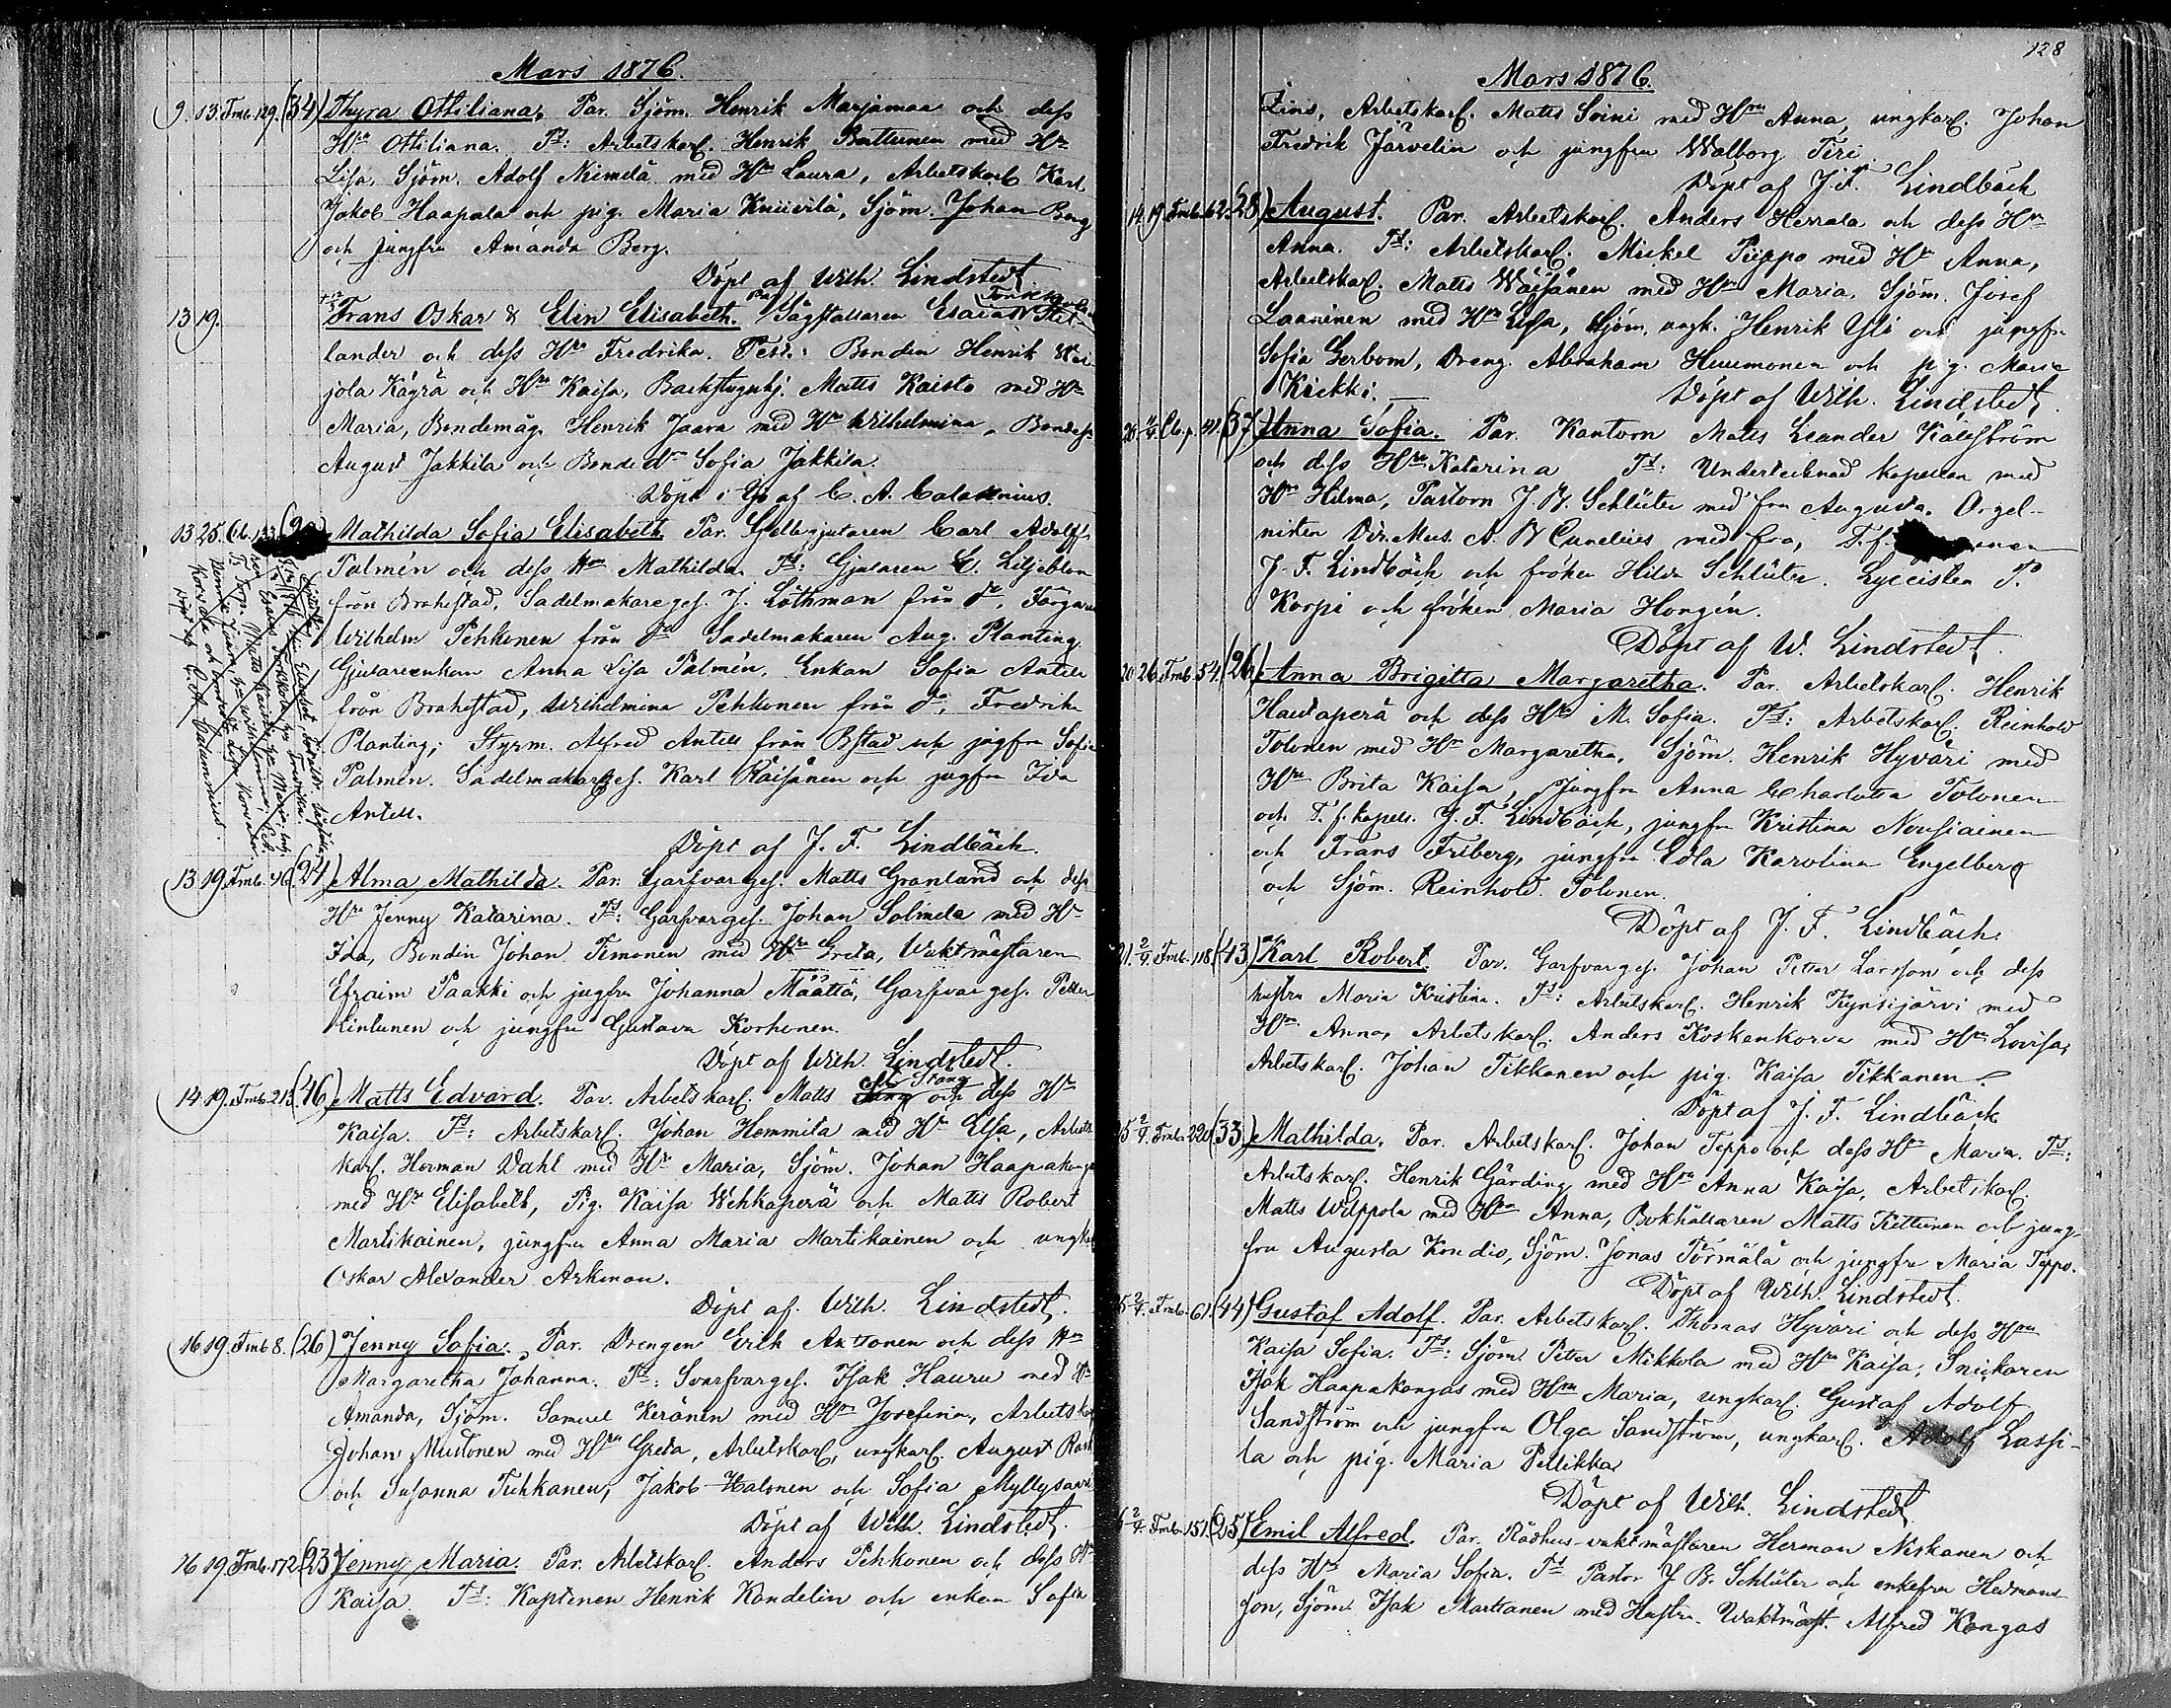 Mars 1876.
9. 13. Fmb. 129. (34) Thyra Ottiliana. Par. Sjöm. Henrik Marjamaa och dess
Hru Ottiliana. Ts: Arbetskarl. Henrik Buttunen med Hu
Lisa, Sjöm. Adolf Niemelä med Hu Laura, Arbetskarl Karl
Jakob Haapala och pig. Maria Kniivilä, Sjöm. Johan Berg
och jungfru Amanda Berg.
Döpt af Wilh. Lindstedt
13 19. Frans Oskar & Elin Elisabeth. Par Sågställaren Esaias
lander och dess Hru Fredrika. Test.: Bonden Henrik
jola Käyrä och Hru Kaisa, Backstuguhj. Matts Kaisto med Hu
Maria, Bondemåg. Henrik Jaara med Hu Wilhelmina, Bondes.
August Jakkila och Bonded. Sofia Jakkila.
Döpt i Ijo af C. A. Calamnius.
13 25. Mathilda Sofia Elisabeth. Par. Gelbgjutaren Carl Adolff
Palmén och dess Hru Mathilda. Ts: Gjutaren C. Liljeblom
från Brahestad, Sadelmakareges. J. Löthman från do, Färgaren
Wilhelm Pehkonen från do Sadelmakaren Aug. Planting
Gjutareenkan Anna Lisa Palmén. Enkan Sofia Antell
från Brahestad, Wilhelmina Pehkonen från do, Fredrika
Planting; Styrm. Alfred Antell från Bstad och jgfru Sofia
Palmén. Sadelmakareges. Karl Räisänen och jugfru Ida
Antell.
Döpt af J. F. Lindbäck.
13. 19. Fmb. 46. (24) Alma Mathilda. Par. Garfvarges. Matts Granlund och dess
Hru Jenny Katarina. Ts: Garfvarges. Johan Salmela med Hu
Ida, Bonden Johan Timonen med Hru Greta, Vaktmästaren
Efraim Paakki och jugfru Johanna Määttä, Garfvarges. Petter
Hintunen och jungfru Gustava Korhonen.
Döpt af Wilh. Lindstedt.
14. 19. Fmb. 213. (46) Matts Edvard. Par. Arbetskarl. Matts Stång och dess Hu
Kaisa. Ts: Arbetskarl. Johan Hemmilä med Hu Elsa, Arbets
karl. Herman Dahl med Hu Maria, Sjöm. Johan Haapakangas
med Hu Elisabeth, Pig. Kaisa Wehkaperä och Matts Robert
Martikainen, jungfru Anna Maria Martikainen och ungkarl
Oskar Alexander Arkman.
Döpt af. Wilh. Lindstedt.
16 19. Fmb 8. (26) Jenny Sofia. Par. Drengen Erik Anttonen och dess Hu
Margaretha Johanna. Ts: Svarfvarges. Isak Hauru med Hu
Amanda, Sjöm. Samuel Keränen med Hru Josefina, Arbetskarl
Johan Mustonen med Hru Greta, Arbetskarl, ungkarl. August Rask
och Susanna Tuhkanen, Jakob Halonen och Sofia Myllysaari
Döpt af Wilh. Lindstedt.
16 19. Fmb. 172. (23) Jenny Maria. Par. Arbetskarl. Anders Pehkonen och dess Hu
Kaisa. Ts: Kaptenen Henrik Kandelin och enkan Sofia
128
Mars 1876.
Arbetskarl. Matts Soini med Hru Anna, ungkarl. Johan
Fredrik Järvelin och jungfru Walborg Piri
Döpt af J. F. Lindbäck
14. 19. Fmb. 62. (28) August. Par. Arbetskarl. Anders Herrala och dess Hu
Anna. Ts: Arbetskarl. Mickel Piippo med Hu Anna,
Arbetskarl. Matts Wäisänen med Hru Maria, Sjöm. Josef
Laaninen med Hru Elsa, Sjöm. ungk. Henrik Yli och jungfru
Sofia Gerbom, Dreng. Abraham Huumonen och pig. Maria
Kiikki.
Döpt af Wilh. Lindstedt.
(37) Anna Sofia. Par. Kantorn Matts Leander Källström
och dess Hru Katarina Ts: Undertecknad kapellan med
Hru Hilma, Pastorn J. B. Schlüter med fru Augusta. Orgel-
nisten Dir. Mus. med fru, T.f.
J. F. Lindbäck och fröken Hilda Schlüter. Lyceisten P.
Korpi och fröken Maria Hongén.
Döpt af W. Lindstedt.
20 26. Fmb. 54. (26) Anna Brigitta Margaretha. Par. Arbetskarl. Henrik
Hautaperä och dess Hru M. Sofia. Ts: Arbetskarl. Reinhold
Tolonen med Hru Margaretha, Sjöm. Henrik Hyväri med
Hru Brita Kaisa, Jungfru Anna Charlotta Tolonen
och T. f. kapell. J. F. Lindbäck, jungfru Kristina Nousiainen
och Frans Friberg, jungfru Edla Karolina Engelberg
och Sjöm. Reinhold Tolonen.
Döpt af J. F. Lindbäck.
21. 2/4. Fmb. 118. (43) Karl Robert. Par. Garfvarges. Johan Petter Larsson och dess
hustru Maria Kristina. Ts: Arbetskarl. Henrik Kynsijärvi med
Hru Anna, Arbetskarl. Anders Koskenkorva med Hru Lovisa,
Arbetskarl. Johan Tikkanen och pig. Kaisa Tikkanen.
Döpt af J. F. Lindbäck
2/4. Fmb. 220 (33) Mathilda. Par. Arbetskarl. Johan Teppo och dess Hru Maria. Ts:
Arbetskarl. Henrik Gärding med Hru Anna Kaisa, Arbetskarl.
Matts Wilppola med Hru Anna, Bokhållaren Matts Kettunen och jung-
fru Augusta Kondio, Sjöm. Jonas Törmälä och jungfru Maria Teppo.
Döpt af Wilh. Lindstedt.
2/4. Fmb. 61. (44) Gustaf Adolf. Par. Arbetskarl. Thomas Hyväri och dess Hru
Kaisa Sofia. Ts: Sjöm. Petter Mikkola med Hru Kaisa, Snickaren
Isak Haapakangas med Hru Maria, ungkarl. Gustaf Adolf
Sandström och jungfru Olga Sandström, ungkarl. Adolf Lassi-
la och pig. Maria Pellikka
Döpt af Wilh. Lindstedt
2/4. Fmb. 151. (25) Emil Alfred. Par. Rådhus-vaktmästaren Herman Niskanen och
dess Hru Maria Sofia. Ts Pastor J. B. Schlüter och enkefru Hedmans-
son, Sjöm. Isak Marttanen med Hustru. Waktmäst. Alfred Kangas